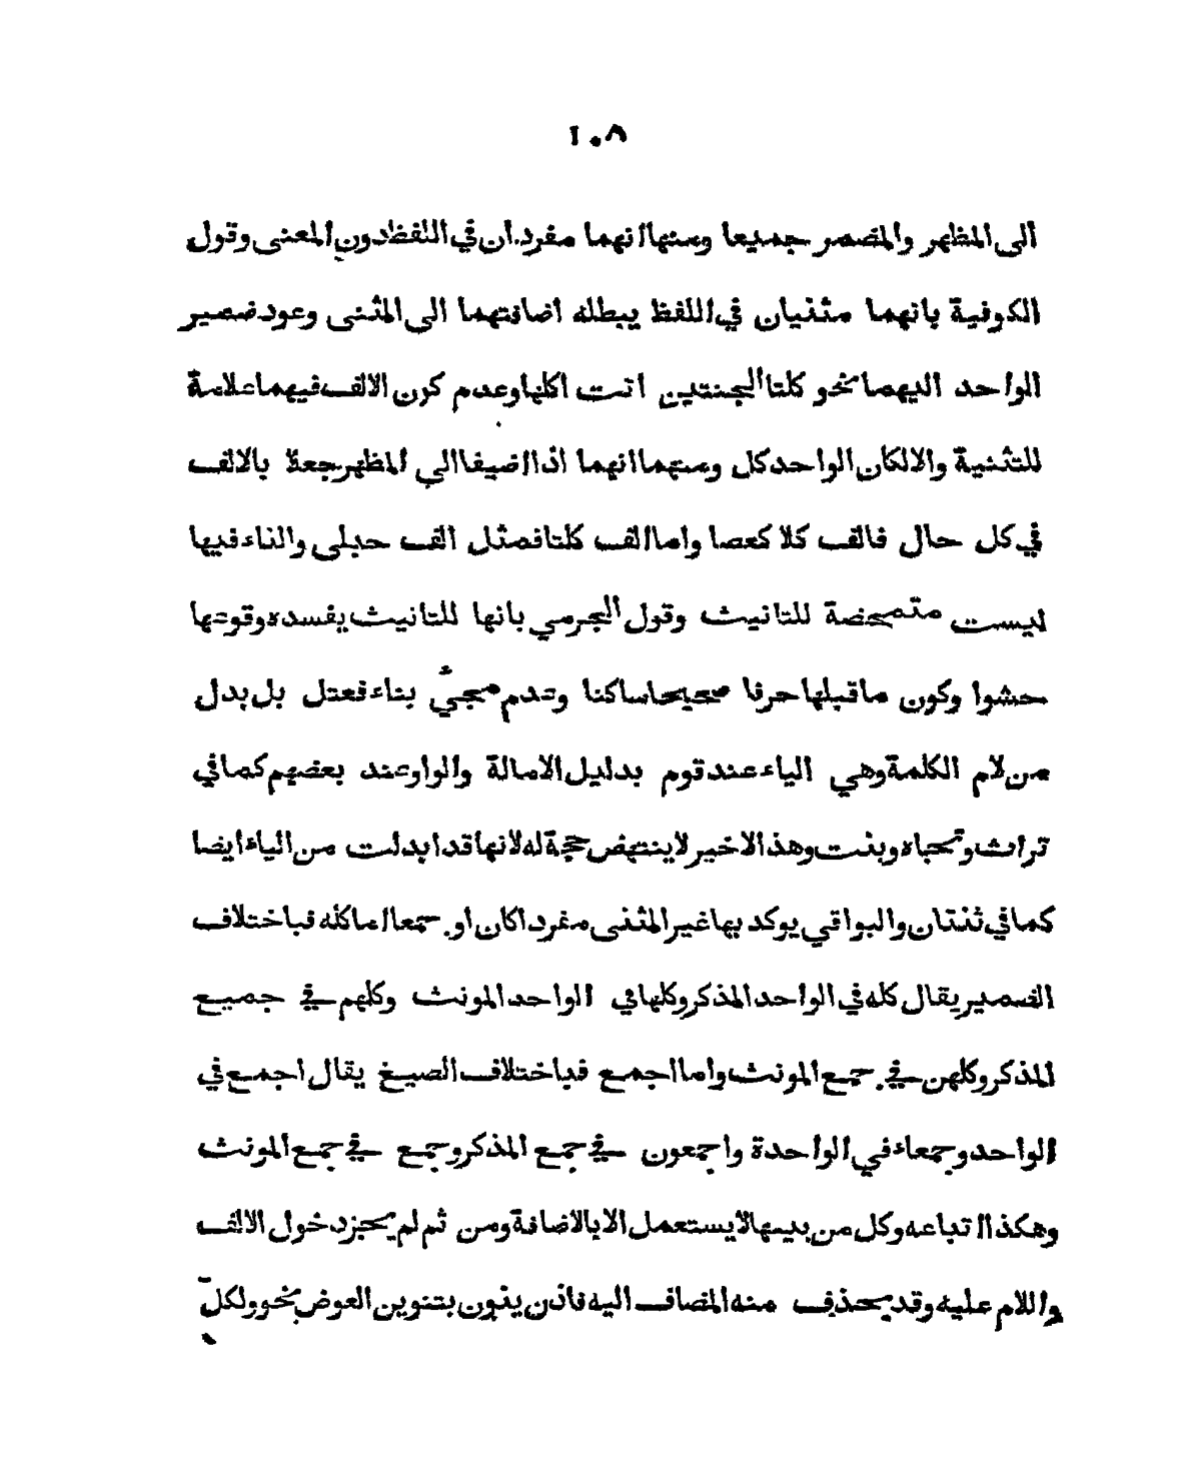 ١٠٨
الى المظهر والمضمر جميعا ومنها انهما مفردان في اللفظ دون المعنى وقول
الكوفية بانهما مثنيان في اللفظ يبطله اضافتهما الى المثنى وعود ضمير
الواحد اليهما نحو كلتا الجنتين اتت اكلها وعدم كون الالف فيهما علامة
للتثنية والا لكان الواحد كل ومنهما انهما اذا اضيفا الى المظهر جعلا بالالف
في كل حال فالف كلا كعصا واما الف كلتا فمثل الف حبلى والتاء فيها
ليست متمحضة للتانيث وقول الجرمي بانها للتانيث يفسده وقوعها
حشوا وكون ما قبلها حرفا صحيحا ساكنا وعدم مجيُ بناء فعتل بل بدل
من لام الكلمة وهي الياء عند قوم بدليل الامالة والواو عند بعضهم كما في
تراث وتجاه وبنت وهذا الاخير لا ينتهض حجة له لانها قد ابدلت من الياء ايضا
كما في ثنتان والبواقي يوكد بها غير المثنى مفردا كان او جمعا اما كله فباختلاف
الضمير يقال كله في الواحد المذكر وكلها في الواحد المونث وكلهم في جميع
المذكر وكلهن في جمع المونث واما اجمع فباختلاف الصيغ يقال اجمع في
الواحد وجمعاء في الواحدة واجمعون في جمع المذكر وجمع في جمع المونث
وهكذا اتباعه وكل من بينها لا يستعمل الا بالاضافة ومن ثم لم يجز دخول الالف
واللام عليه وقد يحذف منه المضاف اليه فاذن ينون بتنوين العوض نحو ولكلّ